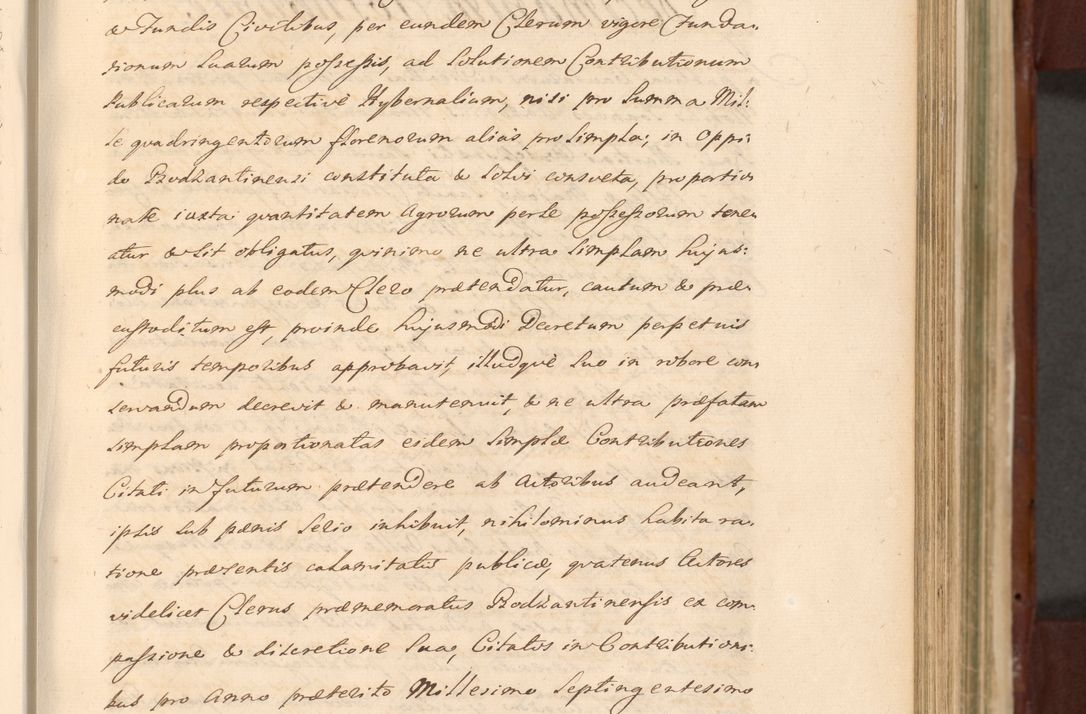 & Fundis Civilibus, per eundem Clerum vigore Funda-
tionum suarum possessis, ad solutionem Contributionum
Publicarum respectivè Hybernalium, nisi pro summa Mil-
le quadringentorum florenorum aliàs pro simpla, in oppi-
do Bodzantinensi constituta & solvi consveta, proportio-
nate iuxta quantitatem Agrorum per se possessorum tene-
atur & sit obligatus, quinimo ne ultra simplam hujus-
modi plus ab eodem Clero prætendatur, cautum & præ-
custoditum est, proinde hujusmodi Decretum perpetuis
futuris temporibus approbavit, illudquè suo in robore con-
servandum decrevit & manutenuit, & ne ultra præfatam
simplam proportionatas eidem simplæ Contributiones
Citati in futurum prætendere ab Actoribus audeant,
ipsis sub pœnis serio inhibuit, nihilominus habita ra-
tione præsentis calamitatis publicæ, quatenus Actores
videlicet Clerus prænemoratus Bodzantinensis ex com-
passione & discretione sua, Citatis in Contributioni-
bus pro Anno præterito Millesimo Septingentesimo